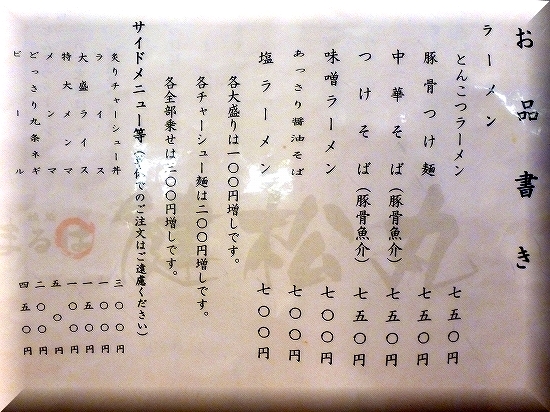 お品書き
ラーメン
とんこつラーメン 七五〇円
豚骨つけ麺 七五〇円
中華そば(豚骨魚介) 七五〇円
つけそば(豚骨魚介) 七五〇円
味噌ラーメン 七〇〇円
あっさり醤油そば 七〇〇円
塩ラーメン 七〇〇円
各大盛りは一〇〇円増しです。
各チャーシュー麺は二〇〇円増しです。
各全部乗せは三〇〇円増しです。
サイドメニュー等(単体でのご注文はご遠慮ください)
炙りチャーシュー丼 三〇〇円
ライス 一〇〇円
大盛ライス 一五〇円
特大メンマ 一〇〇円
メンマ 五〇円
どっさり九条ネギ 二〇〇円
ビール 四五〇円
松丸